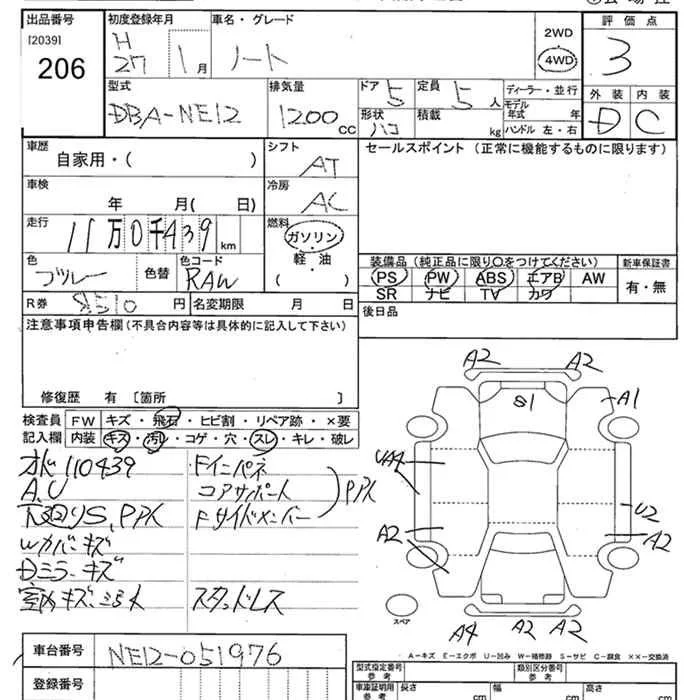 出品番号 初度登録年月 車名・グレード 2WD 評価点
[2039] 206 H27 1月 ノート 4WD 3
型式 排気量 ドア 定員 ディーラー・並行 外装 内装
DBA-NE12 1200 CC 5 5人 モデル年式 年 D C
形状 ハコ 積載 kg ハンドル 左・右
車歴 シフト セールスポイント (正常に機能するものに限ります)
自家用・( ) AT
車検 冷房
年 月( 日) AC
走行 燃料
11万0千439 km ガソリン・軽・油
色 色替 色コード 装備品 (純正品に限り○をつけてください) 新車保証書
RAW PS PW ABS エアB AW 有・無
SR ナビ TV カワ
R券 8510 円 名変期限 月 日 後日品
注意事項申告欄 (不具合内容等は具体的に記入して下さい)
修復歴 有 [箇所 ]
A2 A2
S1 A1
検査員 FW キズ・飛石・ヒビ割・リペア跡・×要
記入欄 内装 キズ・汚レ・コゲ・穴・スレ・キレ・破レ
110439 Fインパネ UA4
A.U コアサポート PPK
下回りS、PPK Fサイドメンバー U2
Wカバーキズ A2 A2
Dミラーキズ
スタッドレス
スペア
A4 A2 A2
A-キズ E-エクボ U-凹み W-補修跡 S-サビ C-腐食 ××-交換済
車台番号 NE12-051976
登録番号
型式指定番号 参考 類別区分番号 参考
車庫証明用 参考 長さ cm 幅 cm 高さ cm